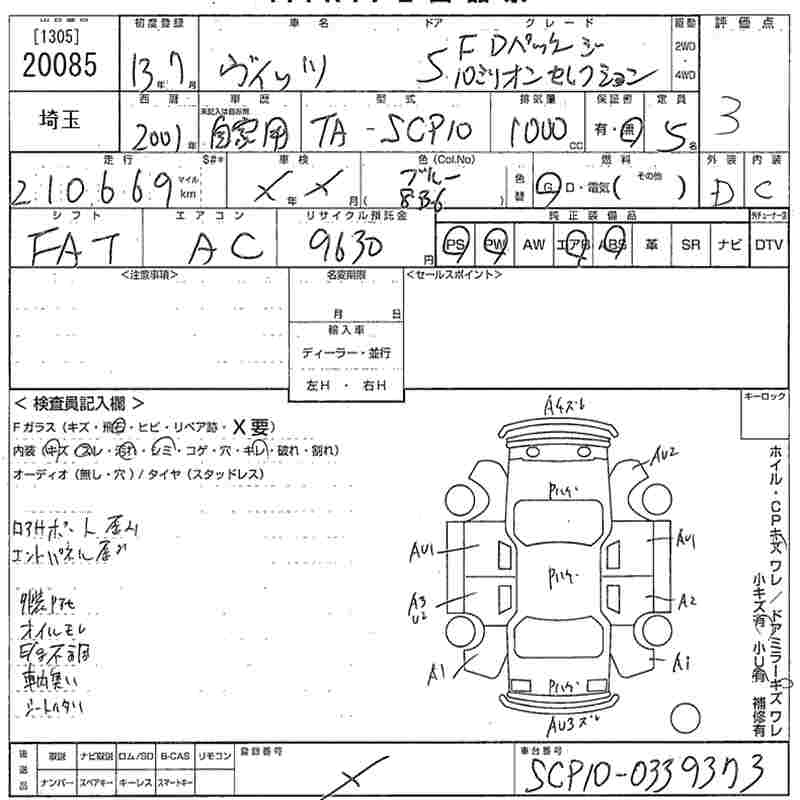 [1305]
20085
初度登録
13.7月
車名
ヴィッツ
ドア
5
グレード
F Dパッケージ
10ミリオンセレクション
駆動
2WD
4WD
評価点
3
埼玉
西暦
2001年
車歴
未記入は自家用
自家用
型式
TA-SCP10
排気量
1000cc
保証書
有・無
定員
5名
走行
210669
マイル
km
S#*
車検
X年X月
色(Col.No)
ブルー
8B6
色替
燃料
G・D・電気(その他)
外装
D
内装
C
シフト
FAT
エアコン
AC
リサイクル預託金
9630円
純正装備品
PS PW AW エアB ABS 革 SR ナビ DTV
<注意事項>
名変期限
月 日
輸入車
ディーラー・並行
左H・右H
<セールスポイント>
キーロック
<検査員記入欄>
Fガラス(キズ・飛石・ヒビ・リペア跡・X要)
内装(キズ・スレ・汚れ・シミ・コゲ・穴・キレ・破れ・割れ)
オーディオ(無し・穴)/タイヤ(スタッドレス)
エンドパネル歪ミ
オイルモレ
A4ズレ
AU2
Pハゲ
AU1
AU1
Pハゲ
A3
U2
A2
A1
A1
Pハゲ
AU3ズレ
ホイル・CPキズワレ/ドアミラーキズワレ
小キズ有/小U有 補修有
後送品
取説
ナビ取説
ロム/SD
B-CAS
リモコン
ナンバー
スペアキー
キーレス
スマートキー
登録番号
X
車台番号
SCP10-0339373